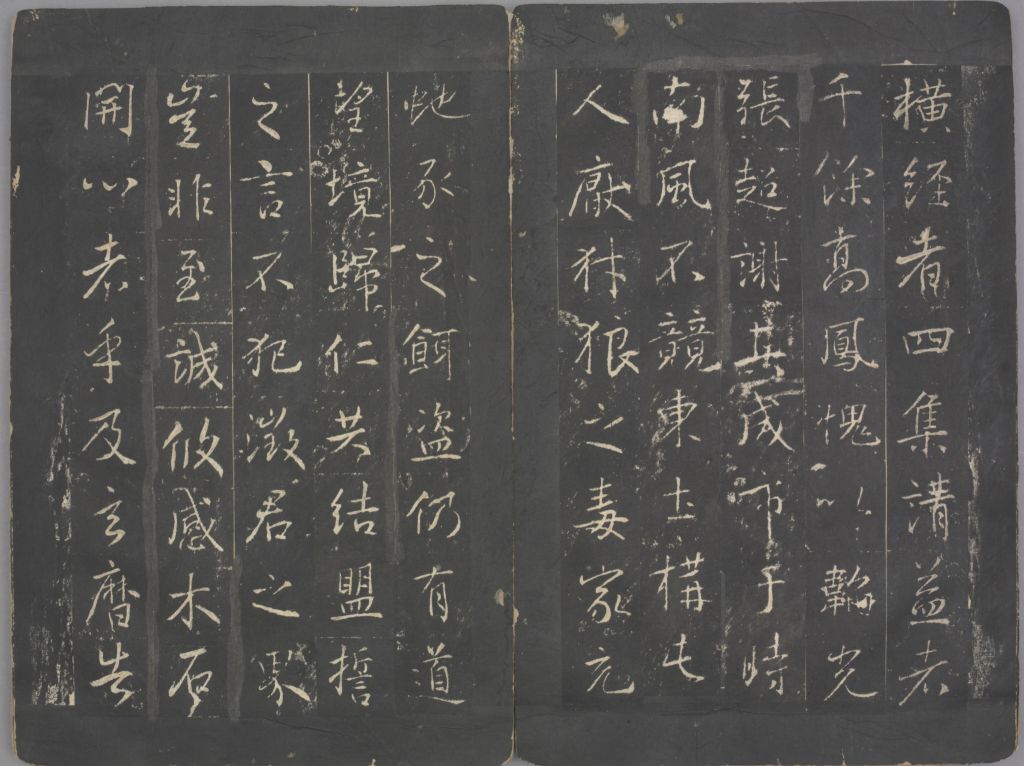 橫經者四集請益者
千餘高鳳愧以韜光
張超謝其成市于時
南風不競東土構屯
人厭犲狼之毒家充
虵豕之餌盜仍有道
望境歸仁共結盟誓
之言不犯徵君之界
豈非至誠攸感木石
開心者乎及玄曆告